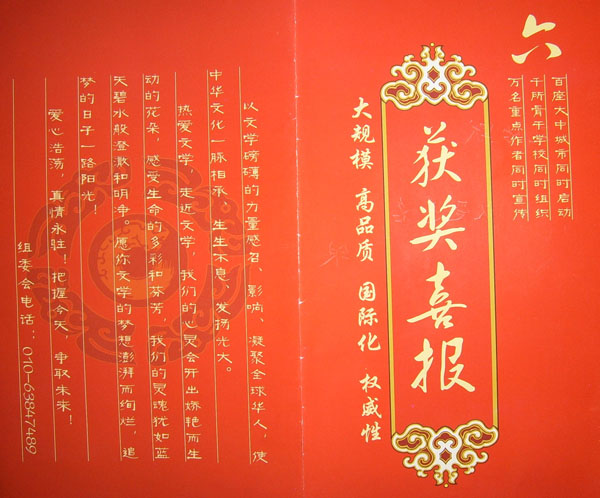 六
百座大中城市同时启动
千所骨干学校同时组织
万名重点作者同时宣传
获奖喜报
大规模 高品质 国际化 权威性
以文学磅礴的力量感召、影响、凝聚全球华人,使
中华文化一脉相承,生生不息、发扬光大。
热爱文学,走近文学,我们的心灵会开出娇艳而生
动的花朵,感受生命的多彩和芬芳,我们的灵魂犹如蓝
天碧水般澄澈和明净。愿你文学的梦想澎湃而绚烂,追
梦的日子一路阳光!
爱心浩荡,真情永驻!把握今天,争取未来!
组委会电话:010-63847489